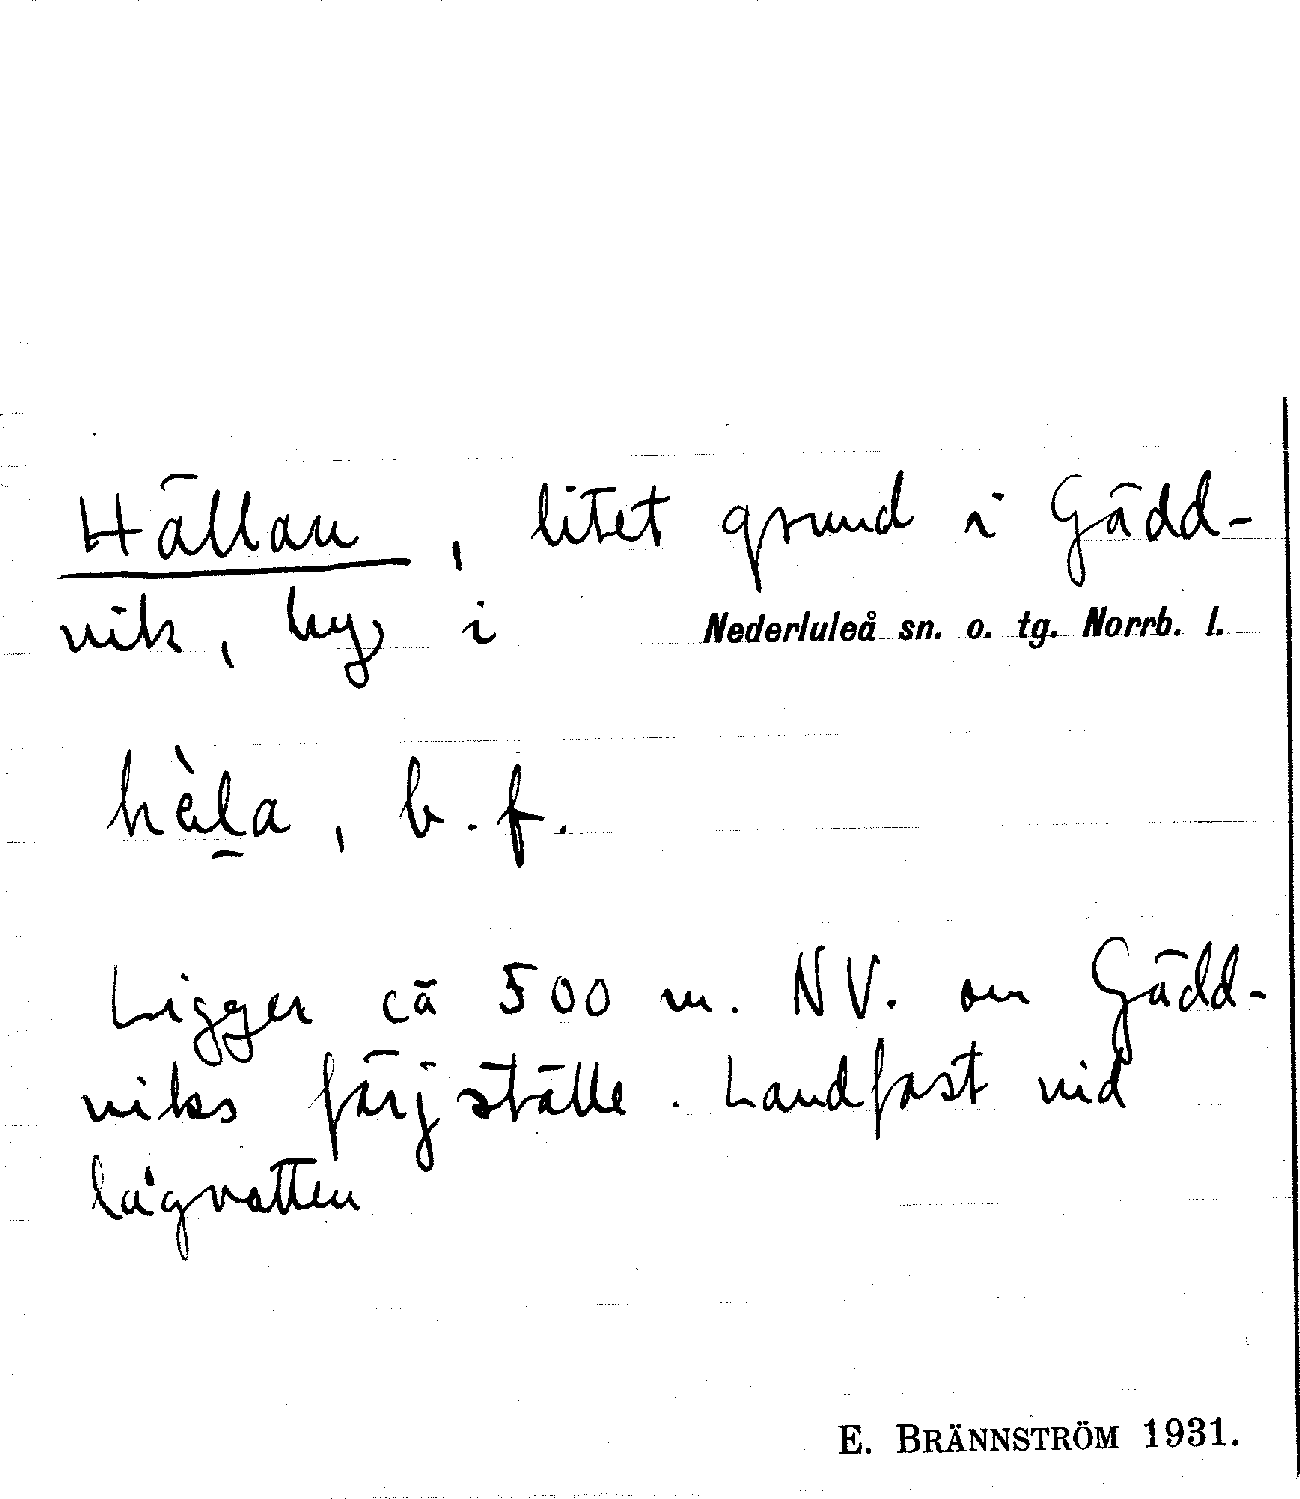 Hällan, litet grund i Gädd-
vik, by i Nederluleå sn. o. tg. Norrb. l.
hèl̲a, b. f.
Ligger cā 500 m. NV. om Gädd-
viks färjställe. Landfast vid
lågvatten
E. BRÄNNSTRÖM 1931.